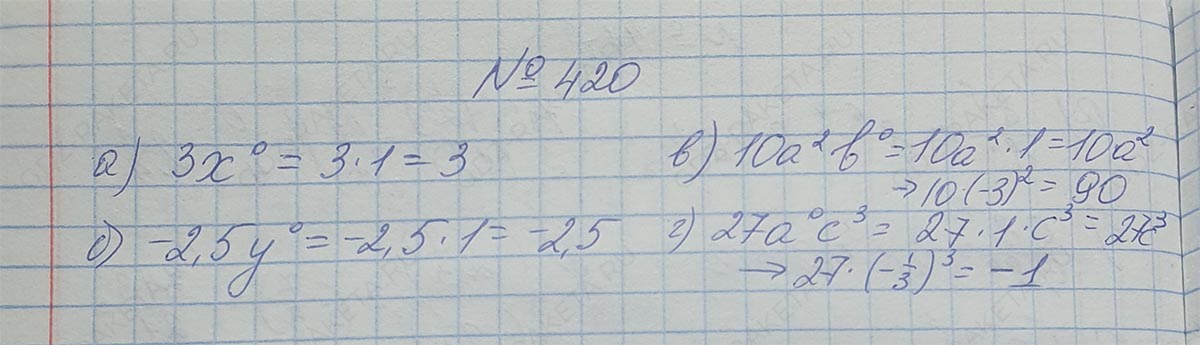 № 420
а) 3x⁰ = 3·1 = 3
б) -2,5y⁰ = -2,5·1 = -2,5
в) 10a²b⁰ = 10a²·1 = 10a²
→ 10·(-3)² = 90
г) 27a⁰c³ = 27·1·c³ = 27c³
→ 27·(-1/3)³ = -1